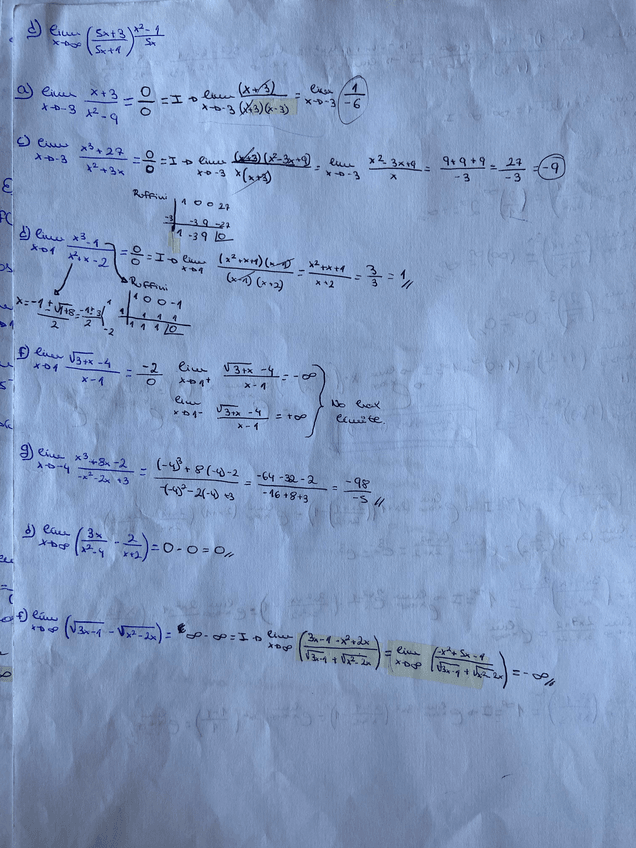 d) lim x→∞ (5x+3 / 5x+1)^(x²-1 / 5x)
a) lim x→-3 x+3 / x²-9 = 0/0 = I → lim x→-3 (x+3) / (x+3)(x-3) = lim x→-3 1/-6
c) lim x→-3 x³+27 / x²+3x = 0/0 = I → lim x→-3 (x+3)(x²-3x+9) / x(x+3) = lim x→-3 x²-3x+9 / x = 9+9+9 / -3 = 27/-3 = -9
Ruffini
1 0 0 27
-3 -3 9 -27
1 -3 9 0
d) lim x→1 x³-1 / x²+x-2 = 0/0 = I → lim x→1 (x²+x+1)(x-1) / (x-1)(x+2) = x²+x+1 / x+2 = 3/3 = 1
Ruffini
x = -1 ± √1+8 / 2 = -1±3 / 2 1 -2
1 0 0 -1
1 1 1 1
1 1 1 0
f) lim x→1 √3+x -4 / x-1 = -2/0 lim x→1⁺ √3+x -4 / x-1 = -∞
lim x→1⁻ √3+x -4 / x-1 = +∞
No hax límite.
g) lim x→-4 x³+8x-2 / -x²-2x+3 = (-4)³+8(-4)-2 / -(-4)²-2(-4)+3 = -64-32-2 / -16+8+3 = -98 / -5
d) lim x→∞ (3x / x²-4 - 2 / x+2) = 0 - 0 = 0
f) lim x→∞ (√3x-1 - √x²-2x) = ∞-∞ = I → lim x→∞ (3x-1-x²+2x / √3x-1 + √x²-2x) = lim x→∞ (-x²+5x-1 / √3x-1 + √x²-2x) = -∞